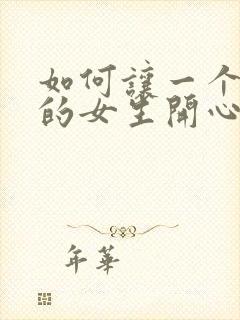 如何讓一个
的女生開心
年華